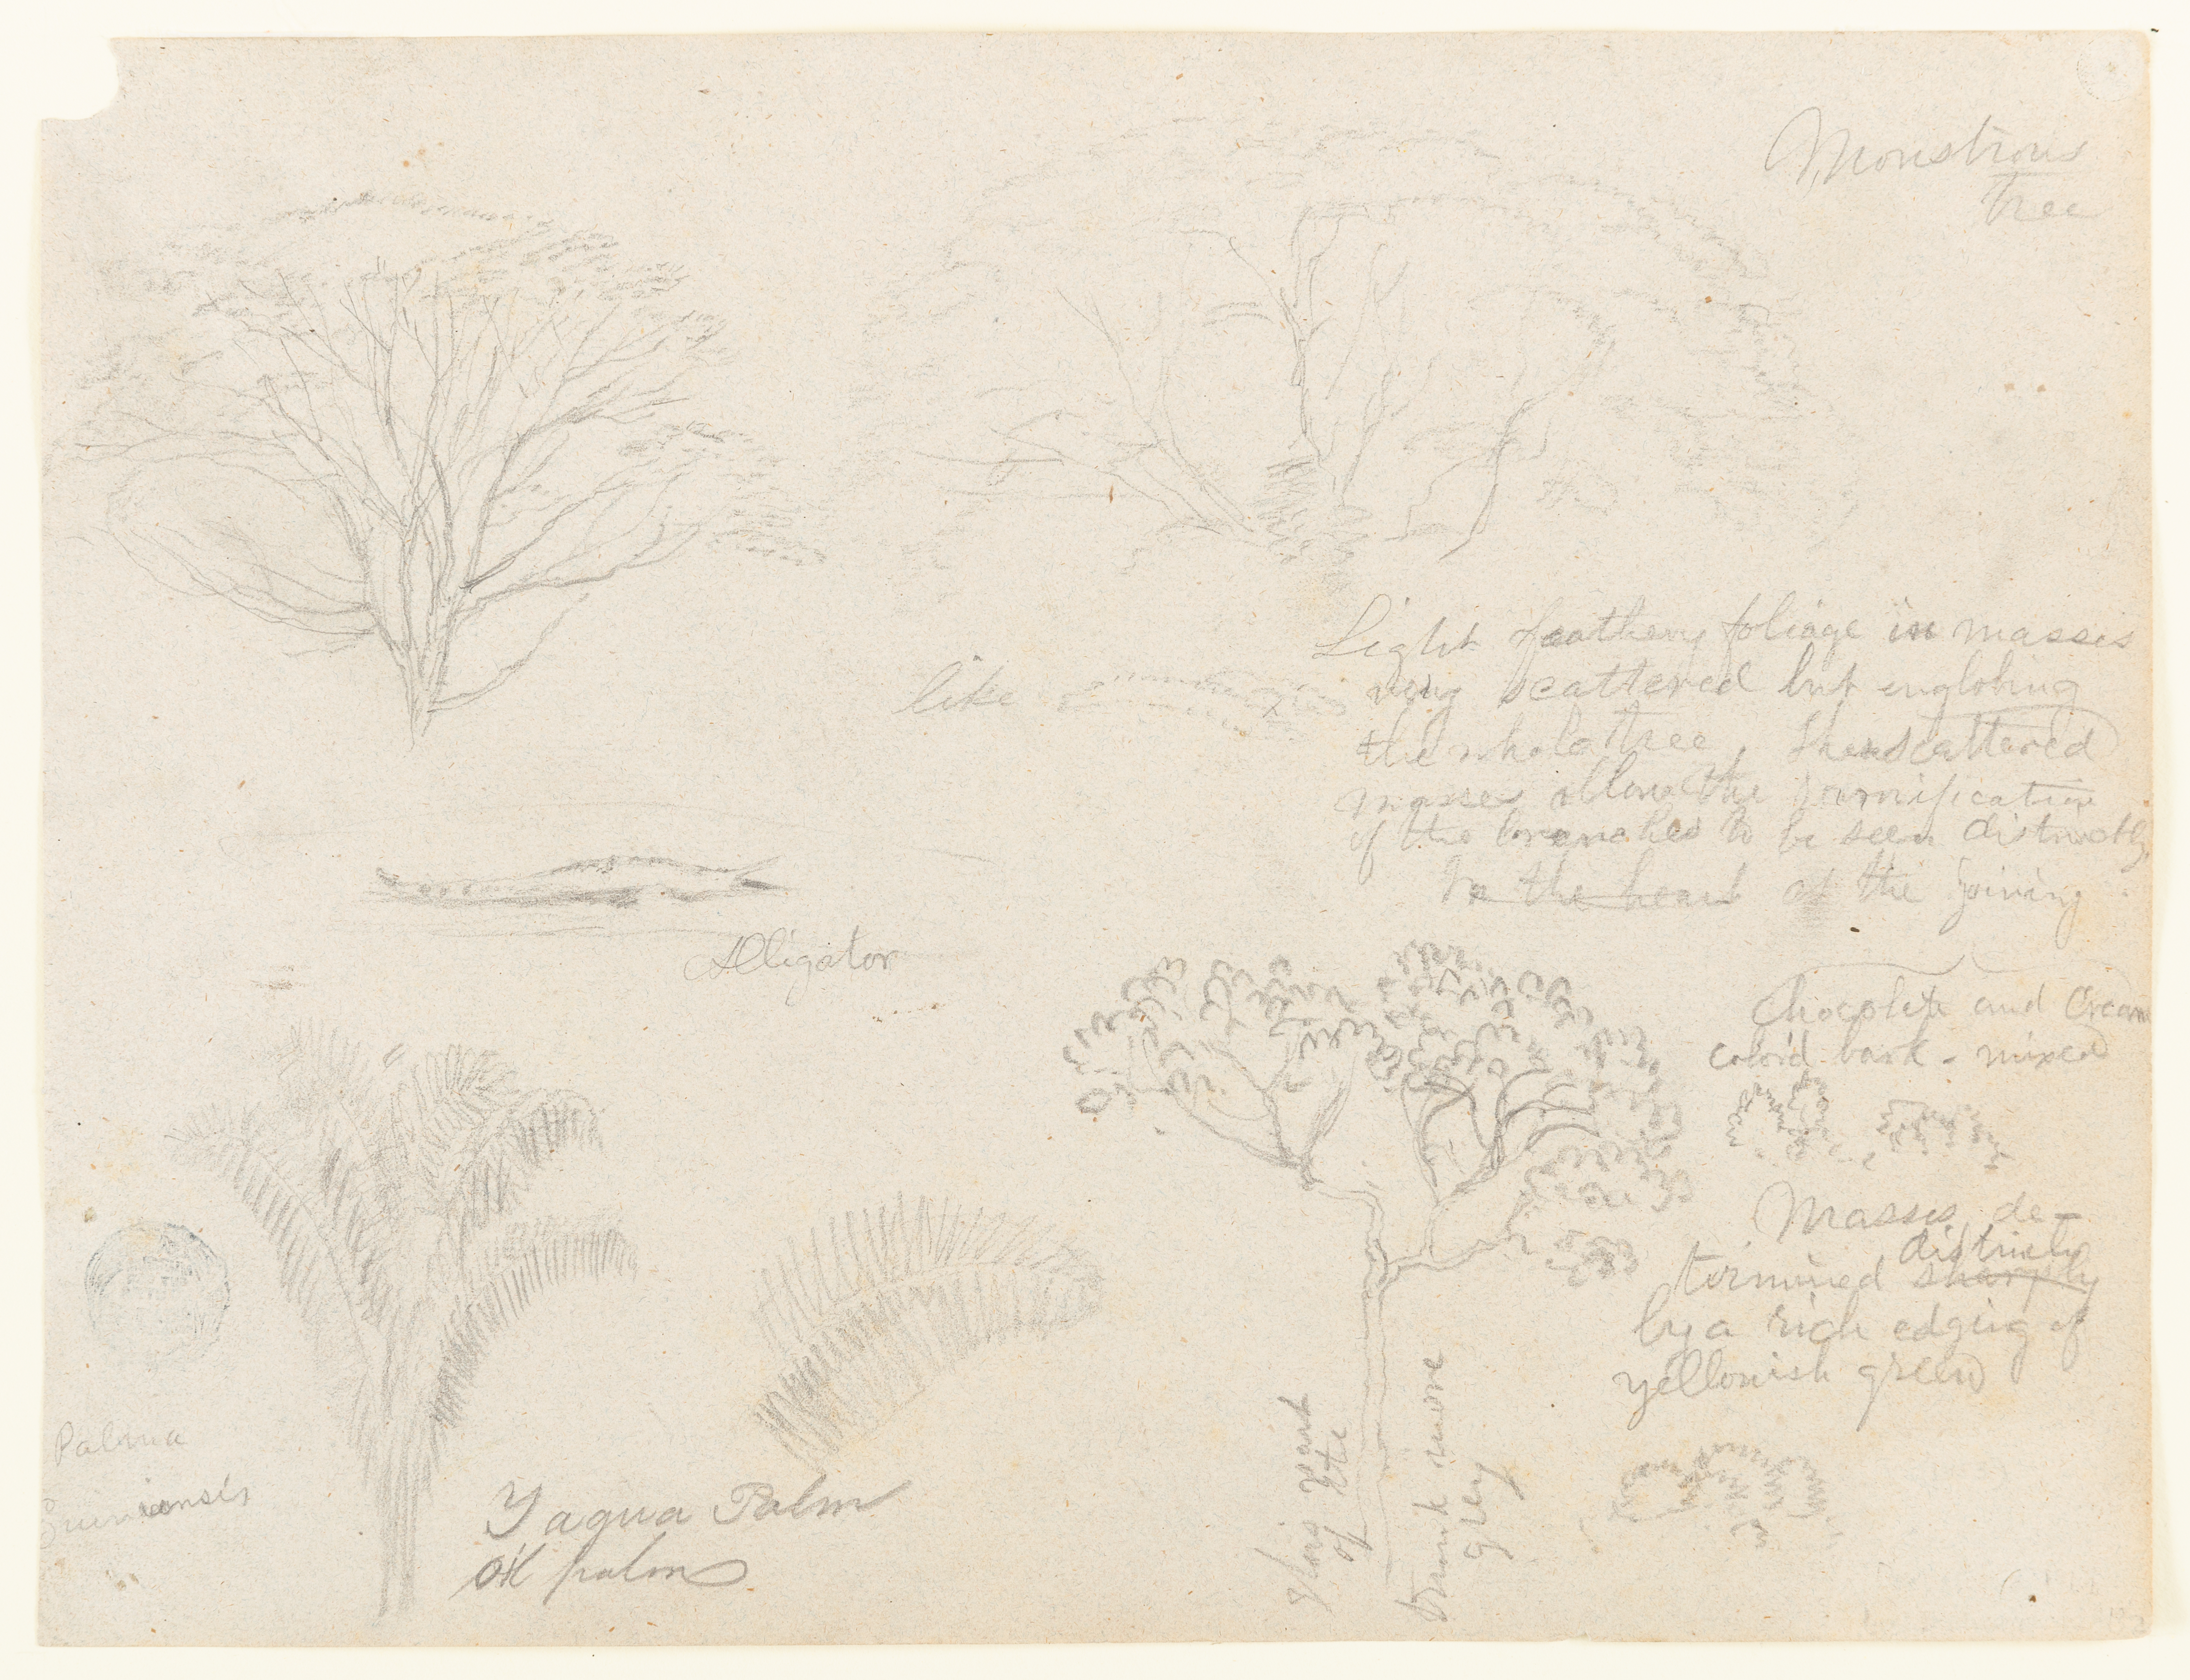 Monstrous
tree
Light feathery foliage in masses
like very scattered but englobing
the whole tree, these scattered
masses allow the ramification
of the branches to be seen distinctly
In the heart at the joining
Alligator
Chocolate and Cream
color'd bark - mixed
Masses de-
distinctly
termined sharply
by a rich edging of
yellowish green
Palma
Guineensis
Yagua Palm
oil palm
this part
of
trunk more
grey